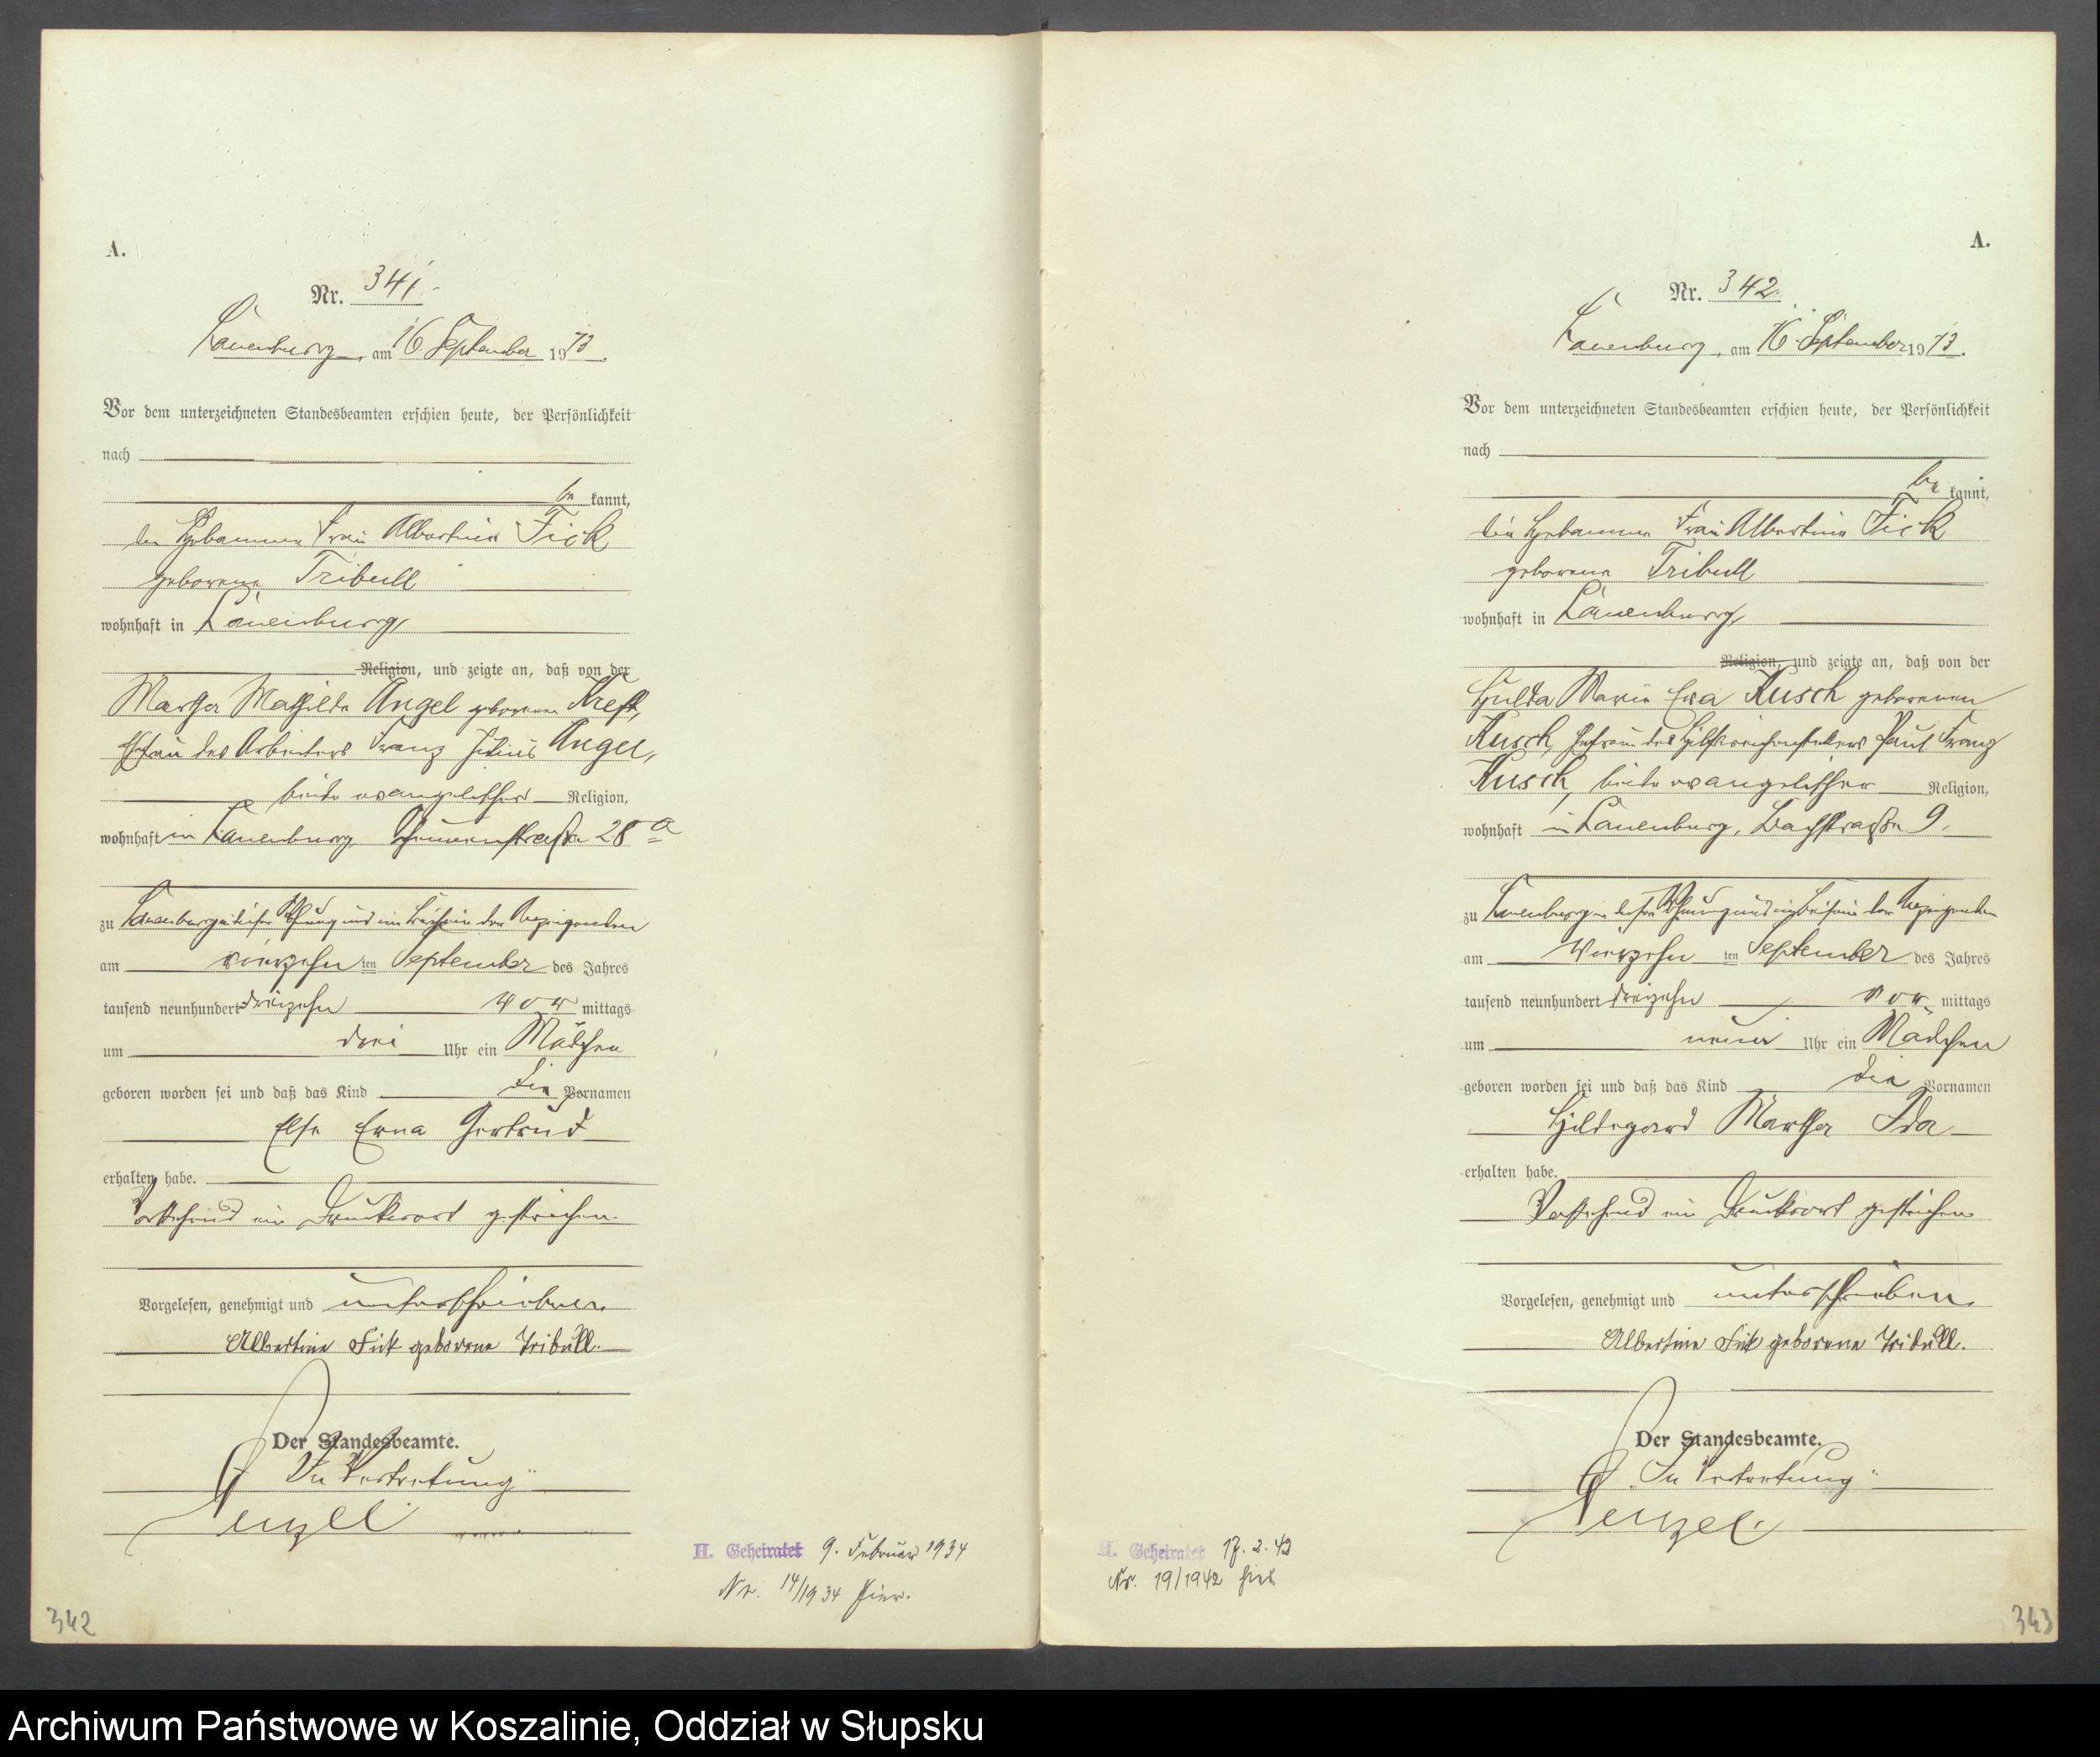 A.
Nr. 341.
Lauenburg, am 16. September 1913.
Vor dem unterzeichneten Standesbeamten erschien heute, der Persönlichkeit
nach
be kannt,
die Hebamme Frau Albertine Fick
geborene Tribull
wohnhaft in Lauenburg,
Religion, und zeigte an, daß von der
Martha Mathilde Angel geborenen Kreft,
Ehefrau des Arbeiters Franz Julius Angel,
beide evangelischer Religion,
wohnhaft in Lauenburg, 28a
zu Lauenburg in dieser Wohnung und im Beisein der Anzeigenden
am vierzehn ten September des Jahres
tausend neunhundert dreizehn vor mittags
um drei Uhr ein Mädchen
geboren worden sei und daß das Kind die Vornamen
Else Erna Gertrud
erhalten habe.
Vorstehend ein Druckwort gestrichen.
Vorgelesen, genehmigt und unterschrieben.
Albertine Fick geborene Tribull.
Der Standesbeamte.
In Vertretung
H. Geheiratet 9. Februar 1934
Nr. 14/1934 hier.
342
A.
Nr. 342.
Lauenburg, am 16. September 1913.
Vor dem unterzeichneten Standesbeamten erschien heute, der Persönlichkeit
nach
be kannt,
die Hebamme Frau Albertine Fick
geborene Tribull
wohnhaft in Lauenburg,
Religion, und zeigte an, daß von der
Hulda Marie Eva Kusch geborenen
Kusch, Ehefrau des Hilfsweichenstellers Paul Franz
Kusch, beide evangelischer Religion,
wohnhaft in Lauenburg, Bachstraße 9,
zu Lauenburg in dieser Wohnung und im Beisein der Anzeigenden
am vierzehn ten September des Jahres
tausend neunhundert dreizehn vor mittags
um neun Uhr ein Mädchen
geboren worden sei und daß das Kind die Vornamen
Hildegard Martha Ida
erhalten habe.
Vorstehend ein Druckwort gestrichen
Vorgelesen, genehmigt und unterschrieben.
Albertine Fick geborene Tribull.
Der Standesbeamte.
In Vertretung
H. Geheiratet 17. 2. 42
Nr. 19/1942 hier
343
Archiwum Państwowe w Koszalinie, Oddział w Słupsku